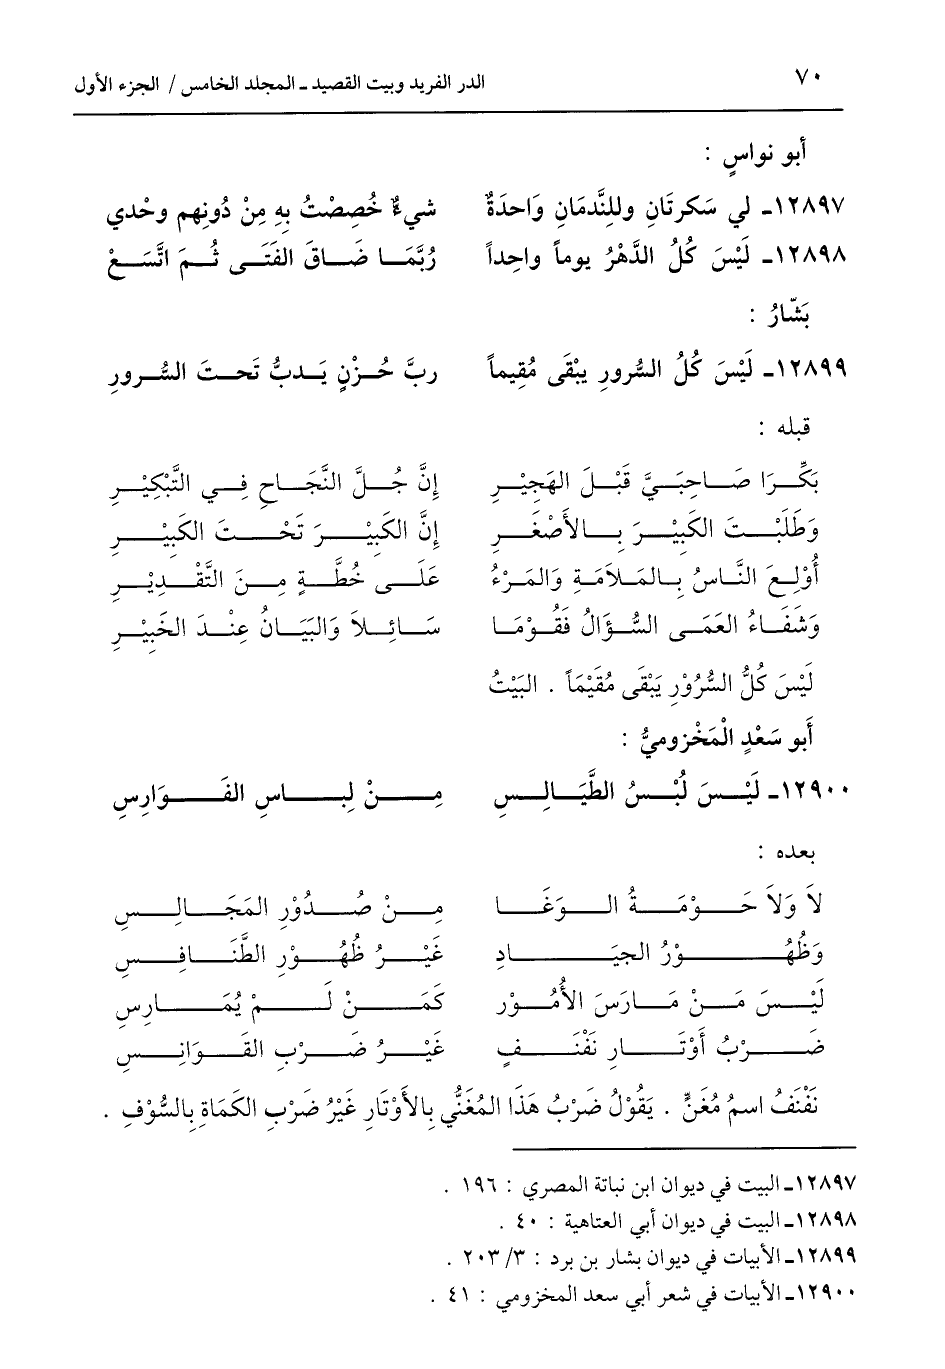 ٧٠
الدر الفريد وبيت القصيد ـ المجلد الخامس / الجزء الأول
أبو نواسٍ :
١٢٨٩٧ـ لي سَكرتَانِ وللِنَّدمَانِ وَاحدَةٌ شيءٌ خُصِصْتُ بِهِ مِنْ دُونِهم وحْدي
١٢٨٩٨ـ لَيْسَ كُلُ الدَّهْرُ يوماً واحِداً رُبَّمَا ضَاقَ الفَتَى ثُمَ اتَّسَعْ
بَشّارُ :
١٢٨٩٩ـ لَيْسَ كُلُ السُّرورِ يبْقَى مُقِيماً ربَّ حُزْنٍ يَدبُّ تَحتَ السُّرورِ
قبله :
بَكِّرَا صَاحِبَيَّ قَبْلَ الهَجِيْرِ إِنَّ جُلَّ النَّجَاحِ فِي التَّبْكِيْرِ
وَطَلَبْتَ الكَبِيْرَ بِالأَصْغَرِ إِنَّ الكَبِيْرَ تَحْتَ الكَبِيْرِ
أُوْلِعَ النَّاسُ بِالمَلاَمَةِ وَالمَرْءُ عَلَى خُطَّةٍ مِنَ التَّقْدِيْرِ
وَشَفَاءُ العَمَى السُّؤَالُ فَقُوْمَا سَائِلاَ وَالبَيَانُ عِنْدَ الخَبِيْرِ
لَيْسَ كُلُّ السُّرُوْرِ يَبْقَى مُقَيْمَاً . البَيْتُ
أَبو سَعْدٍ الْمَخْزوميُّ :
١٢٩٠٠ـ لَيْسَ لُبْسُ الطَّيَالِسِ مِنْ لِبَاسِ الفَوَارِسِ
بعده :
لاَ وَلاَ حَوْمَةُ الوَغَا مِنْ صُدُوْرِ المَجَالِسِ
وَظُهُوْرُ الجيَادِ غَيْرُ ظُهُوْرِ الطَّنَافِسِ
لَيْسَ مَنْ مَارَسَ الأُمُوْرِ كَمَنْ لَمْ يُمَارِسِ
ضَرْبُ أَوْتَارِ نَفْنَفٍ غَيْرُ ضَرْبِ القَوَانِسِ
نَفْنَفُ اسمُ مُغَنٍّ . يَقُوْلُ ضَرْبُ هَذَا المُغَنُّي بِالأَوْتَارِ غَيْرُ ضَرْبِ الكَمَاةِ بِالسُّوْفِ .
١٢٨٩٧ـ البيت في ديوان ابن نباتة المصري : ١٩٦ .
١٢٨٩٨ـ البيت في ديوان أبي العتاهية : ٤٠ .
١٢٨٩٩ـ الأبيات في ديوان بشار بن برد : ٣/ ٢٠٣ .
١٢٩٠٠ـ الأبيات في شعر أبي سعد المخزومي : ٤١ .